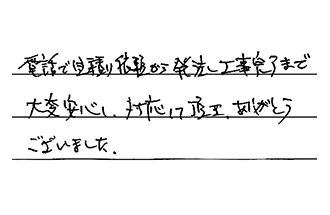 電話で見積り依頼から発注し工事完了まで
大変安心し、対応して頂き、ありがとう
ございました。